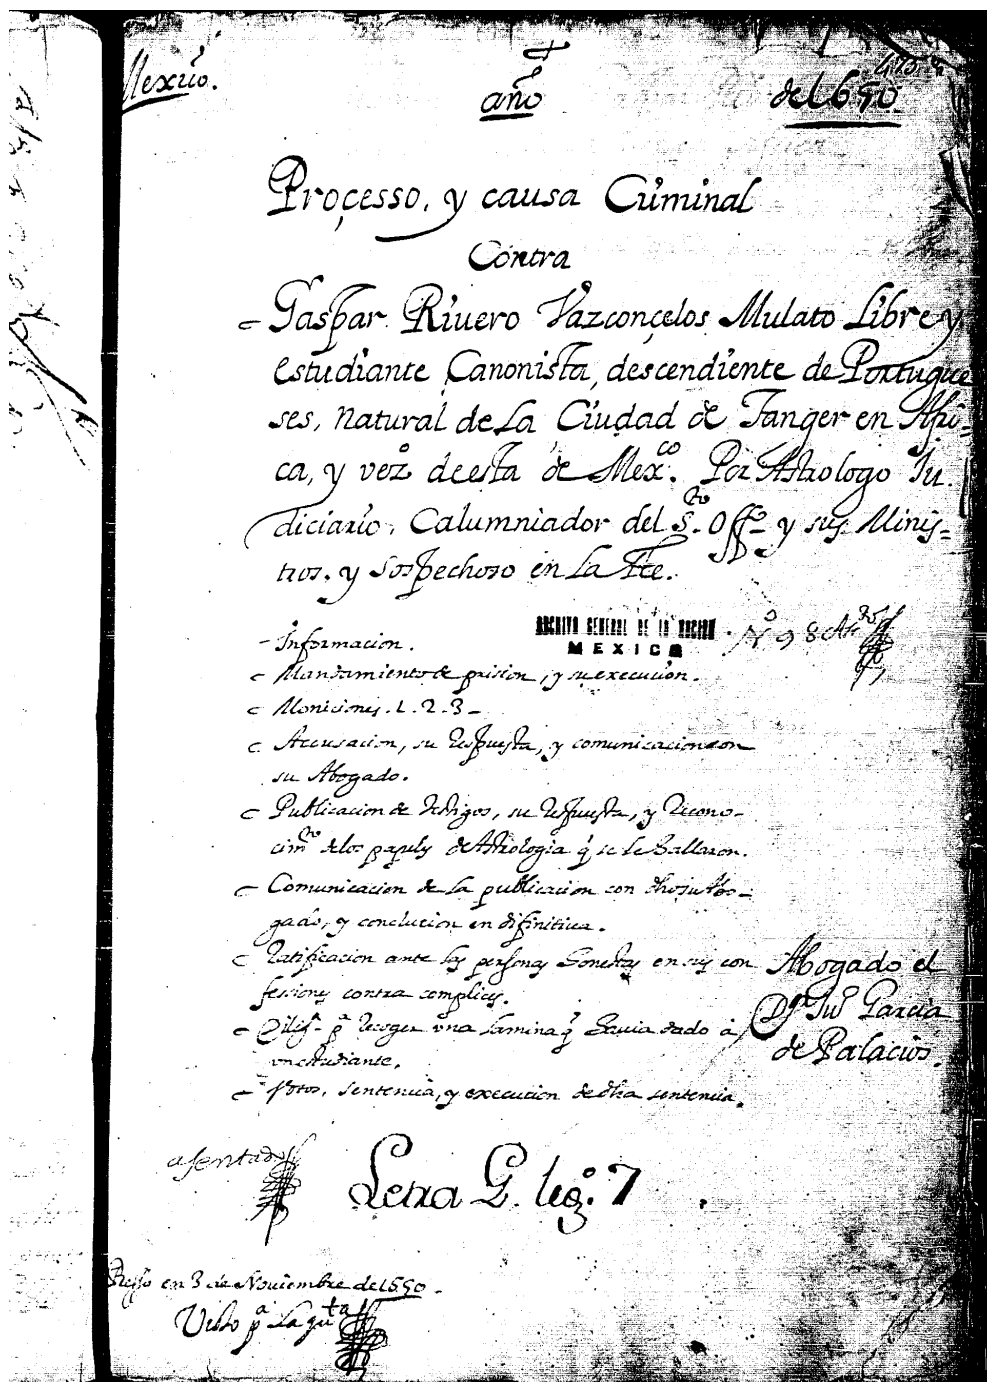 Mexico.
año
de l650
Processo, y causa Criminal
Contra
Gaspar Riuero Vazconçelos Mulato Libre y
estudiante Canonista, descendiente de Portugue
ses, natural de la Ciudad de Tanger en Afri-
ca, y vezº de esta de Mexco. Por Astrologo Ju
diciario, Calumniador del Sto. Offº y sus Minis-
tros. y sospechoso en la Fee.
ARCHIVO GENERAL DE LA NACION
MEXICO
- Informacion.
Mandamiento de prision, y su execucion.
Moniciones. 1. 2. 3 -
Accusacion, su respuesta, y comunicacion con
su Abogado.
Publicacion de testigos, su respuesta, y recono-
cimto de los papeles de Astrologia q̃ se le hallaron.
Comunicacion de la publicacion con dho su Abo-
gado, y conclucion en difinitiua.
Ratificacion ante las personas honestas en sus con
fessiones contra complices.
Abogado el
Dor Juº Garcia
de Palacios.
Diligª pª recoger vna lamina q̃ hauia dado à
vn estudiante.
Votos, sentencia, y execucion de dha sentencia.
asentado
Letra G. legº. 7
Presso en 3 de Nouiembre de l650.
Visto pª la